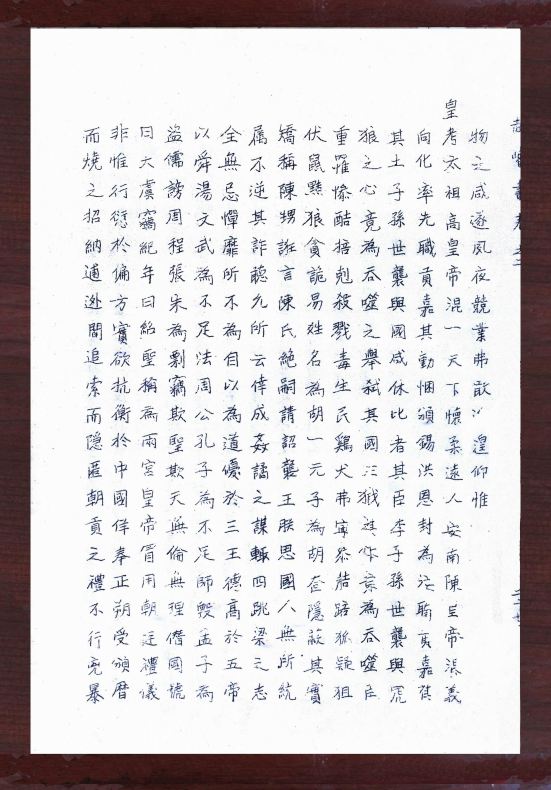 物之咸遂夙夜競業弗敢遑仰惟
皇考太祖高皇帝混一天下懷柔遠人安南陳
向化率先職貢嘉其勤悃頒錫洪恩封為職貢嘉其
其土子孫世襲與國咸休比者其臣李子孫世襲與
狼之心竟為吞噬之舉弒其國為吞噬
重罹慘酷掊剋殺戮毒生民鷄犬弗寧
伏鼠黠狼貪詭易姓名為胡一元子為胡𡗨隱蔽其實
矯稱陳甥誑言陳氏絕嗣請詔襲王朕思國人無所統
属不逆其詐聽允所云倖成姦譎之謀輙四跳梁之志
全無忌憚靡所不為自以為道優於三王德高於五帝
以舜湯文武為不足法周公孔子為不足師毀孟子為
盜儒謗周程張朱為剽竊欺聖欺天無倫無理僭國號
曰大虞竊紀年曰紹聖稱為兩宮皇帝冒用朝廷禮儀
非惟行愆於偏方實欲抗衡於中國佯奉正朔受頒曆
而燒之招納逋逃間追索而隱匿朝貢之禮不行兇暴